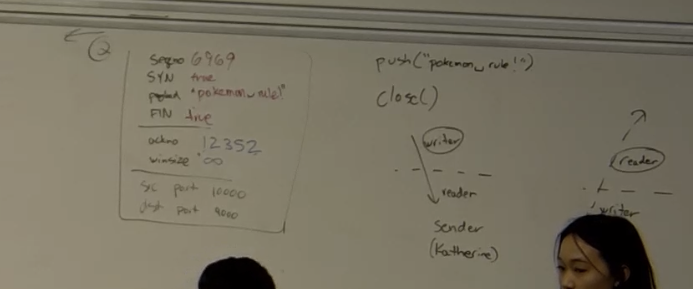 ②
seqno 6969
SYN true
payload "pokemon␣rule!"
FIN true
ackno 12352
winsize ∞
src port 10000
dest port 9000
push("pokemon␣rule!")
close()
writer
reader
sender
(Katherine)
reader
writer